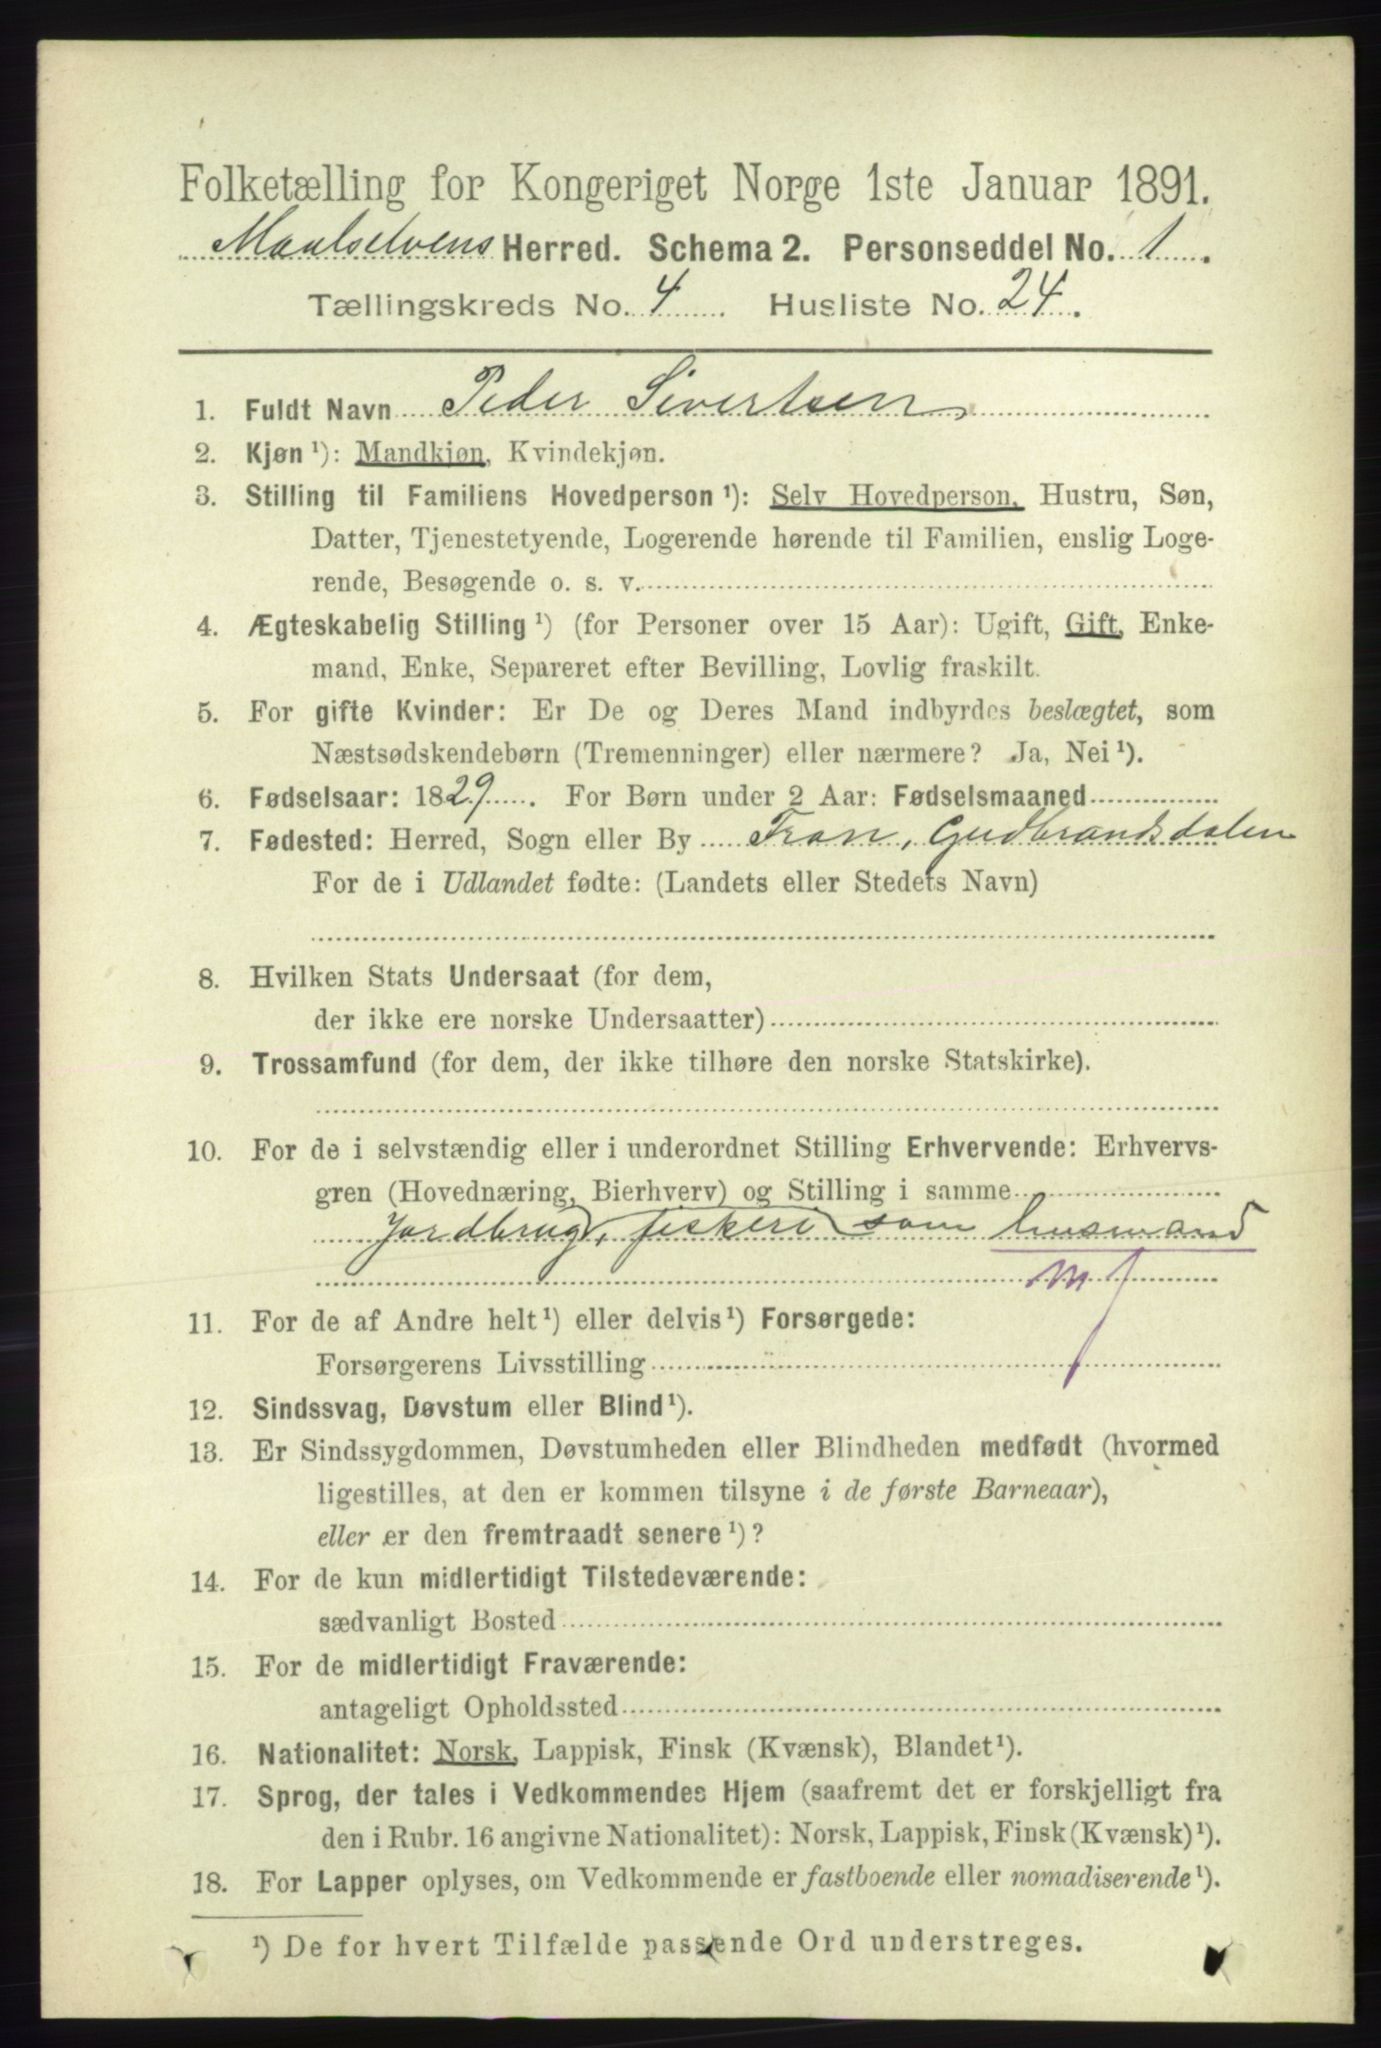 Folketælling for Kongeriget Norge 1ste Januar 1891.
Maalselvens Herred. Schema 2. Personseddel No. 1.
Tællingskreds No. 4. Husliste No. 24.
1. Fuldt Navn Peder Sivertsen
2. Kjøn ¹): Mandkjøn, Kvindekjøn.
3. Stilling til Familiens Hovedperson ¹): Selv Hovedperson, Hustru, Søn,
Datter, Tjenestetyende, Logerende hørende til Familien, enslig Loge-
rende, Besøgende o. s. v.
4. Ægteskabelig Stilling ¹) (for Personer over 15 Aar): Ugift, Gift, Enke-
mand, Enke, Separeret efter Bevilling, Lovlig fraskilt.
5. For gifte Kvinder: Er De og Deres Mand indbyrdes beslægtet, som
Næstsødskendebørn (Tremenninger) eller nærmere? Ja, Nei ¹).
6. Fødselsaar: 1829. For Børn under 2 Aar: Fødselsmaaned
7. Fødested: Herred, Sogn eller By Fron, Gudbrandsdalen
For de i Udlandet fødte: (Landets eller Stedets Navn)
8. Hvilken Stats Undersaat (for dem,
der ikke ere norske Undersaatter)
9. Trossamfund (for dem, der ikke tilhøre den norske Statskirke).
10. For de i selvstændig eller i underordnet Stilling Erhvervende: Erhvervs-
gren (Hovednæring, Bierhverv) og Stilling i samme
Jordbrug, fiskeri som husmand
11. For de af Andre helt ¹) eller delvis ¹) Forsørgede:
Forsørgerens Livsstilling
12. Sindssvag, Døvstum eller Blind ¹).
13. Er Sindssygdommen, Døvstumheden eller Blindheden medfødt (hvormed
ligestilles, at den er kommen tilsyne i de første Barneaar),
eller er den fremtraadt senere ¹)?
14. For de kun midlertidigt Tilstedeværende:
sædvanligt Bosted
15. For de midlertidigt Fraværende:
antageligt Opholdssted
16. Nationalitet: Norsk, Lappisk, Finsk (Kvænsk), Blandet ¹).
17. Sprog, der tales i Vedkommendes Hjem (saafremt det er forskjelligt fra
den i Rubr. 16 angivne Nationalitet): Norsk, Lappisk, Finsk (Kvænsk) ¹).
18. For Lapper oplyses, om Vedkommende er fastboende eller nomadiserende ¹).
¹) De for hvert Tilfælde passende Ord understreges.